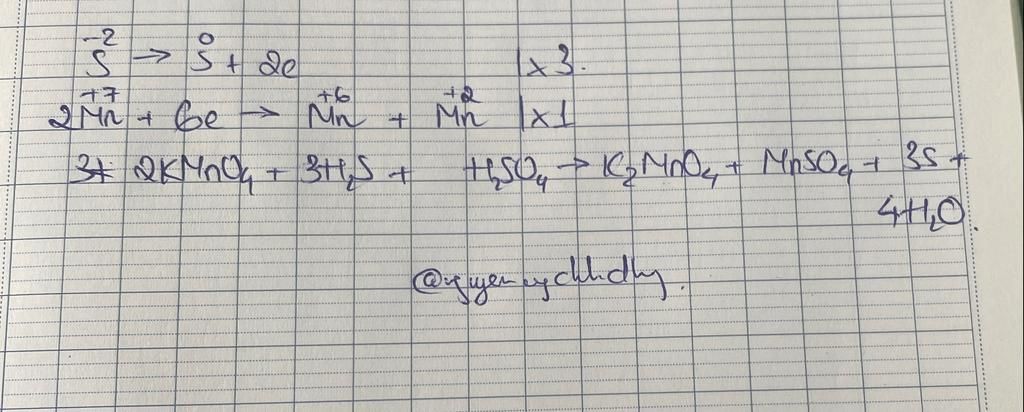 -2 0
S → S + 2e | x 3.
+7 +6 +2
2Mn + 6e → Mn + Mn | x 1
2KMnO₄ + 3H₂S + H₂SO₄ → K₂MnO₄ + MnSO₄ + 3S +
4H₂O.